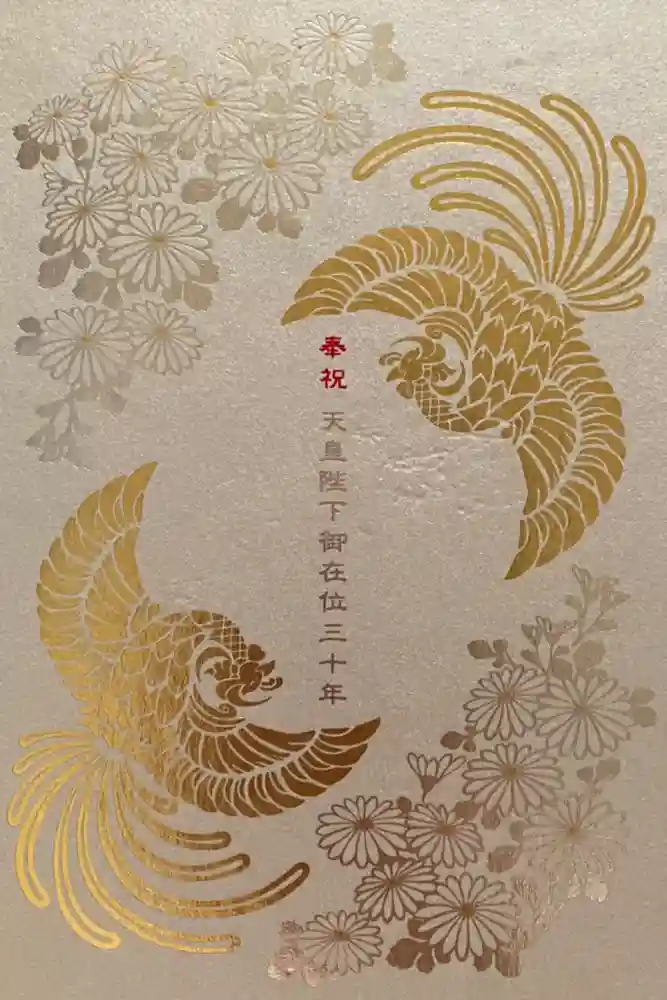 奉祝 天皇陛下御在位三十年